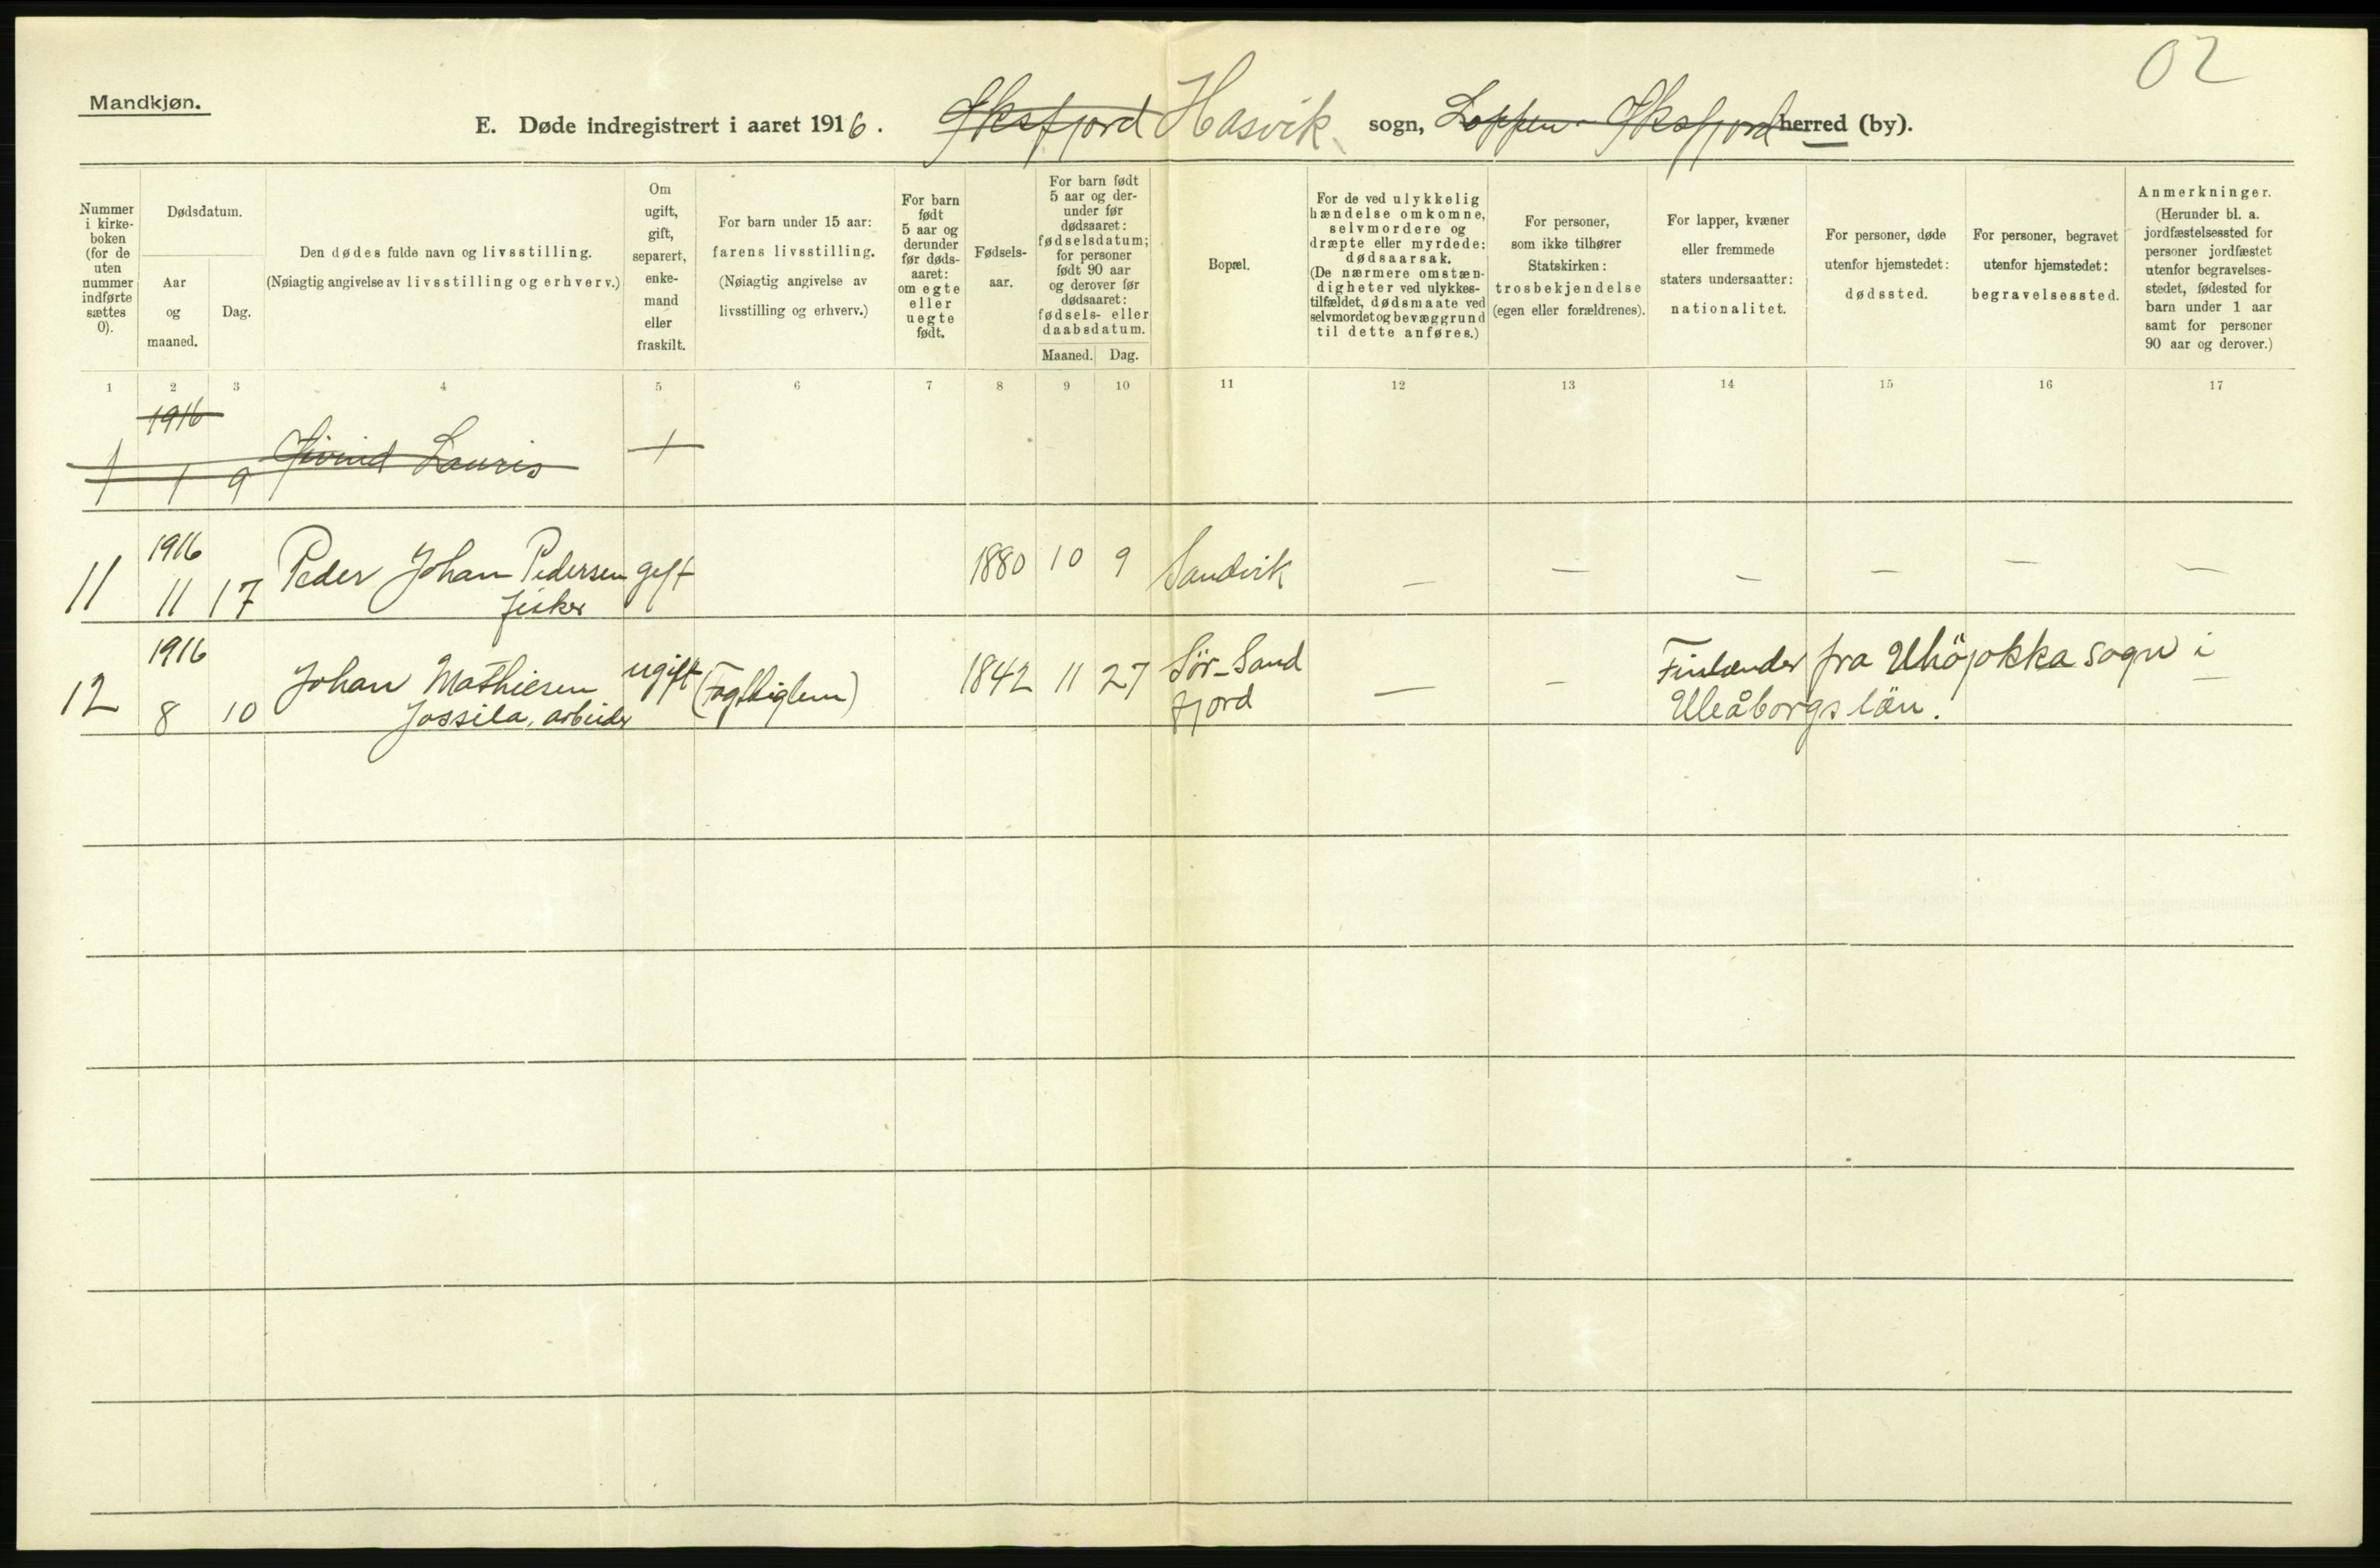 02
Mandkjøn.
E. Døde indregistrert i aaret 1916. Øksfjord Hasvik sogn, Loppen - Øksfjord herred (by).
Nummer i kirke-boken (for de uten nummer indførte sættes 0).
Dødsdatum.
Aar og maaned.
Dag.
Den dødes fulde navn og livsstilling.
(Nøiagtig angivelse av livsstilling og erhverv.)
Om ugift, gift, separert, enke-mand eller fraskilt.
For barn under 15 aar: farens livsstilling.
(Nøiagtig angivelse av livsstilling og erhverv.)
For barn født 5 aar og derunder før døds-aaret: om egte eller uegte født.
Fødsels-aar.
For barn født 5 aar og der-under før dødsaaret: fødselsdatum; for personer født 90 aar og derover før dødsaaret: fødsels- eller daabsdatum.
Maaned. Dag.
Bopæl.
For de ved ulykkelig hændelse omkomne, selvmordere og dræpte eller myrdede: dødsaarsak.
(De nærmere omstæn-digheter ved ulykkes-tilfældet, dødsmaate ved selvmordet og bevæggrund til dette anføres.)
For personer, som ikke tilhører Statskirken: trosbekjendelse (egen eller forældrenes).
For lapper, kvæner eller fremmede staters undersaatter: nationalitet.
For personer, døde utenfor hjemstedet: dødssted.
For personer, begravet utenfor hjemstedet: begravelsessted.
Anmerkninger.
(Herunder bl. a. jordfæstelsessted for personer jordfæstet utenfor begravelses-stedet, fødested for barn under 1 aar samt for personer 90 aar og derover.)
1 2 3 4 5 6 7 8 9 10 11 12 13 14 15 16 17
1916
1 1 9 Øivind Lauris +
1916
11 11 17 Peder Johan Pedersen gift 1880 10 9 Sandvik — — — — — —
fisker
1916
12 8 10 Johan Mathiesen ugift 1842 11 27 Sör-Sand — — Finlænder fra sogn i —
Jossila, arbeider fjord Uleåborgs län.